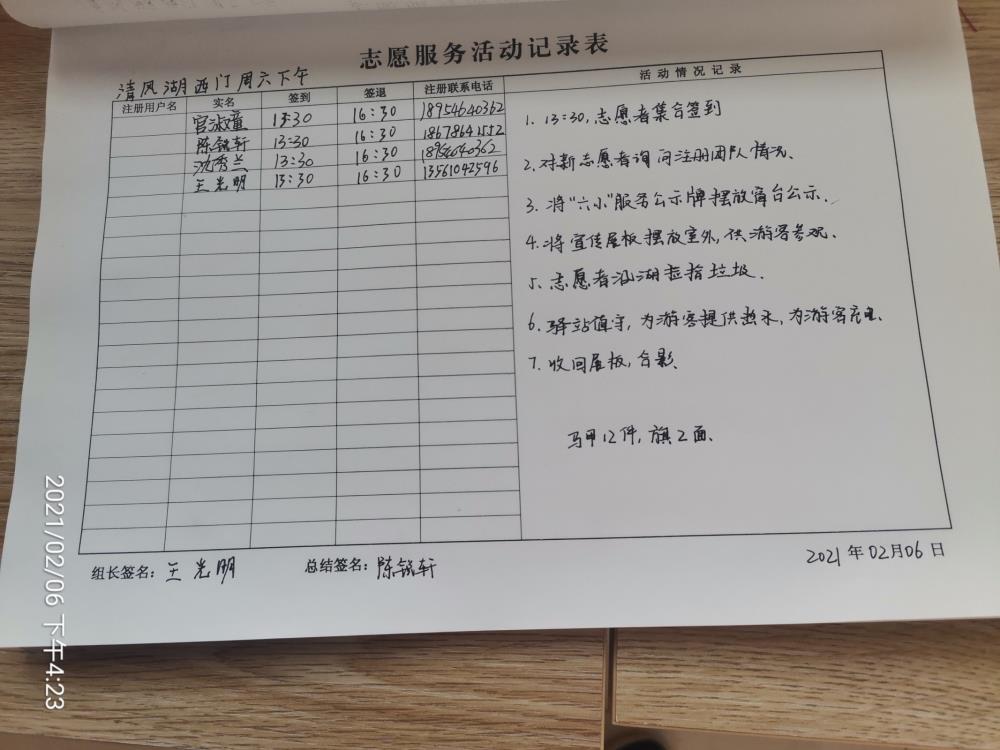 志愿服务活动记录表
清风湖西门周六下午
注册用户名 实名 签到 签退 注册联系电话 活动情况记录
宫淑童 13:30 16:30 18954640362
陈铭轩 13:30 16:30 18678641552
沈秀兰 13:30 16:30 18954640362
王光明 13:30 16:30 13561042596
1. 13:30,志愿者集合签到
2.对新志愿者询问注册团队情况、
3. 将“六小”服务公示牌摆放窗台公示、
4.将宣传展板摆放室外,供游客参观、
5.志愿者沿湖捡拾垃圾、
6.驿站值守,为游客提供热水,为游客充电、
7.收回展板,合影、
马甲12件,旗2面、
组长签名:王光明 总结签名:陈铭轩 2021年02月06日
2021/02/06 下午4:23